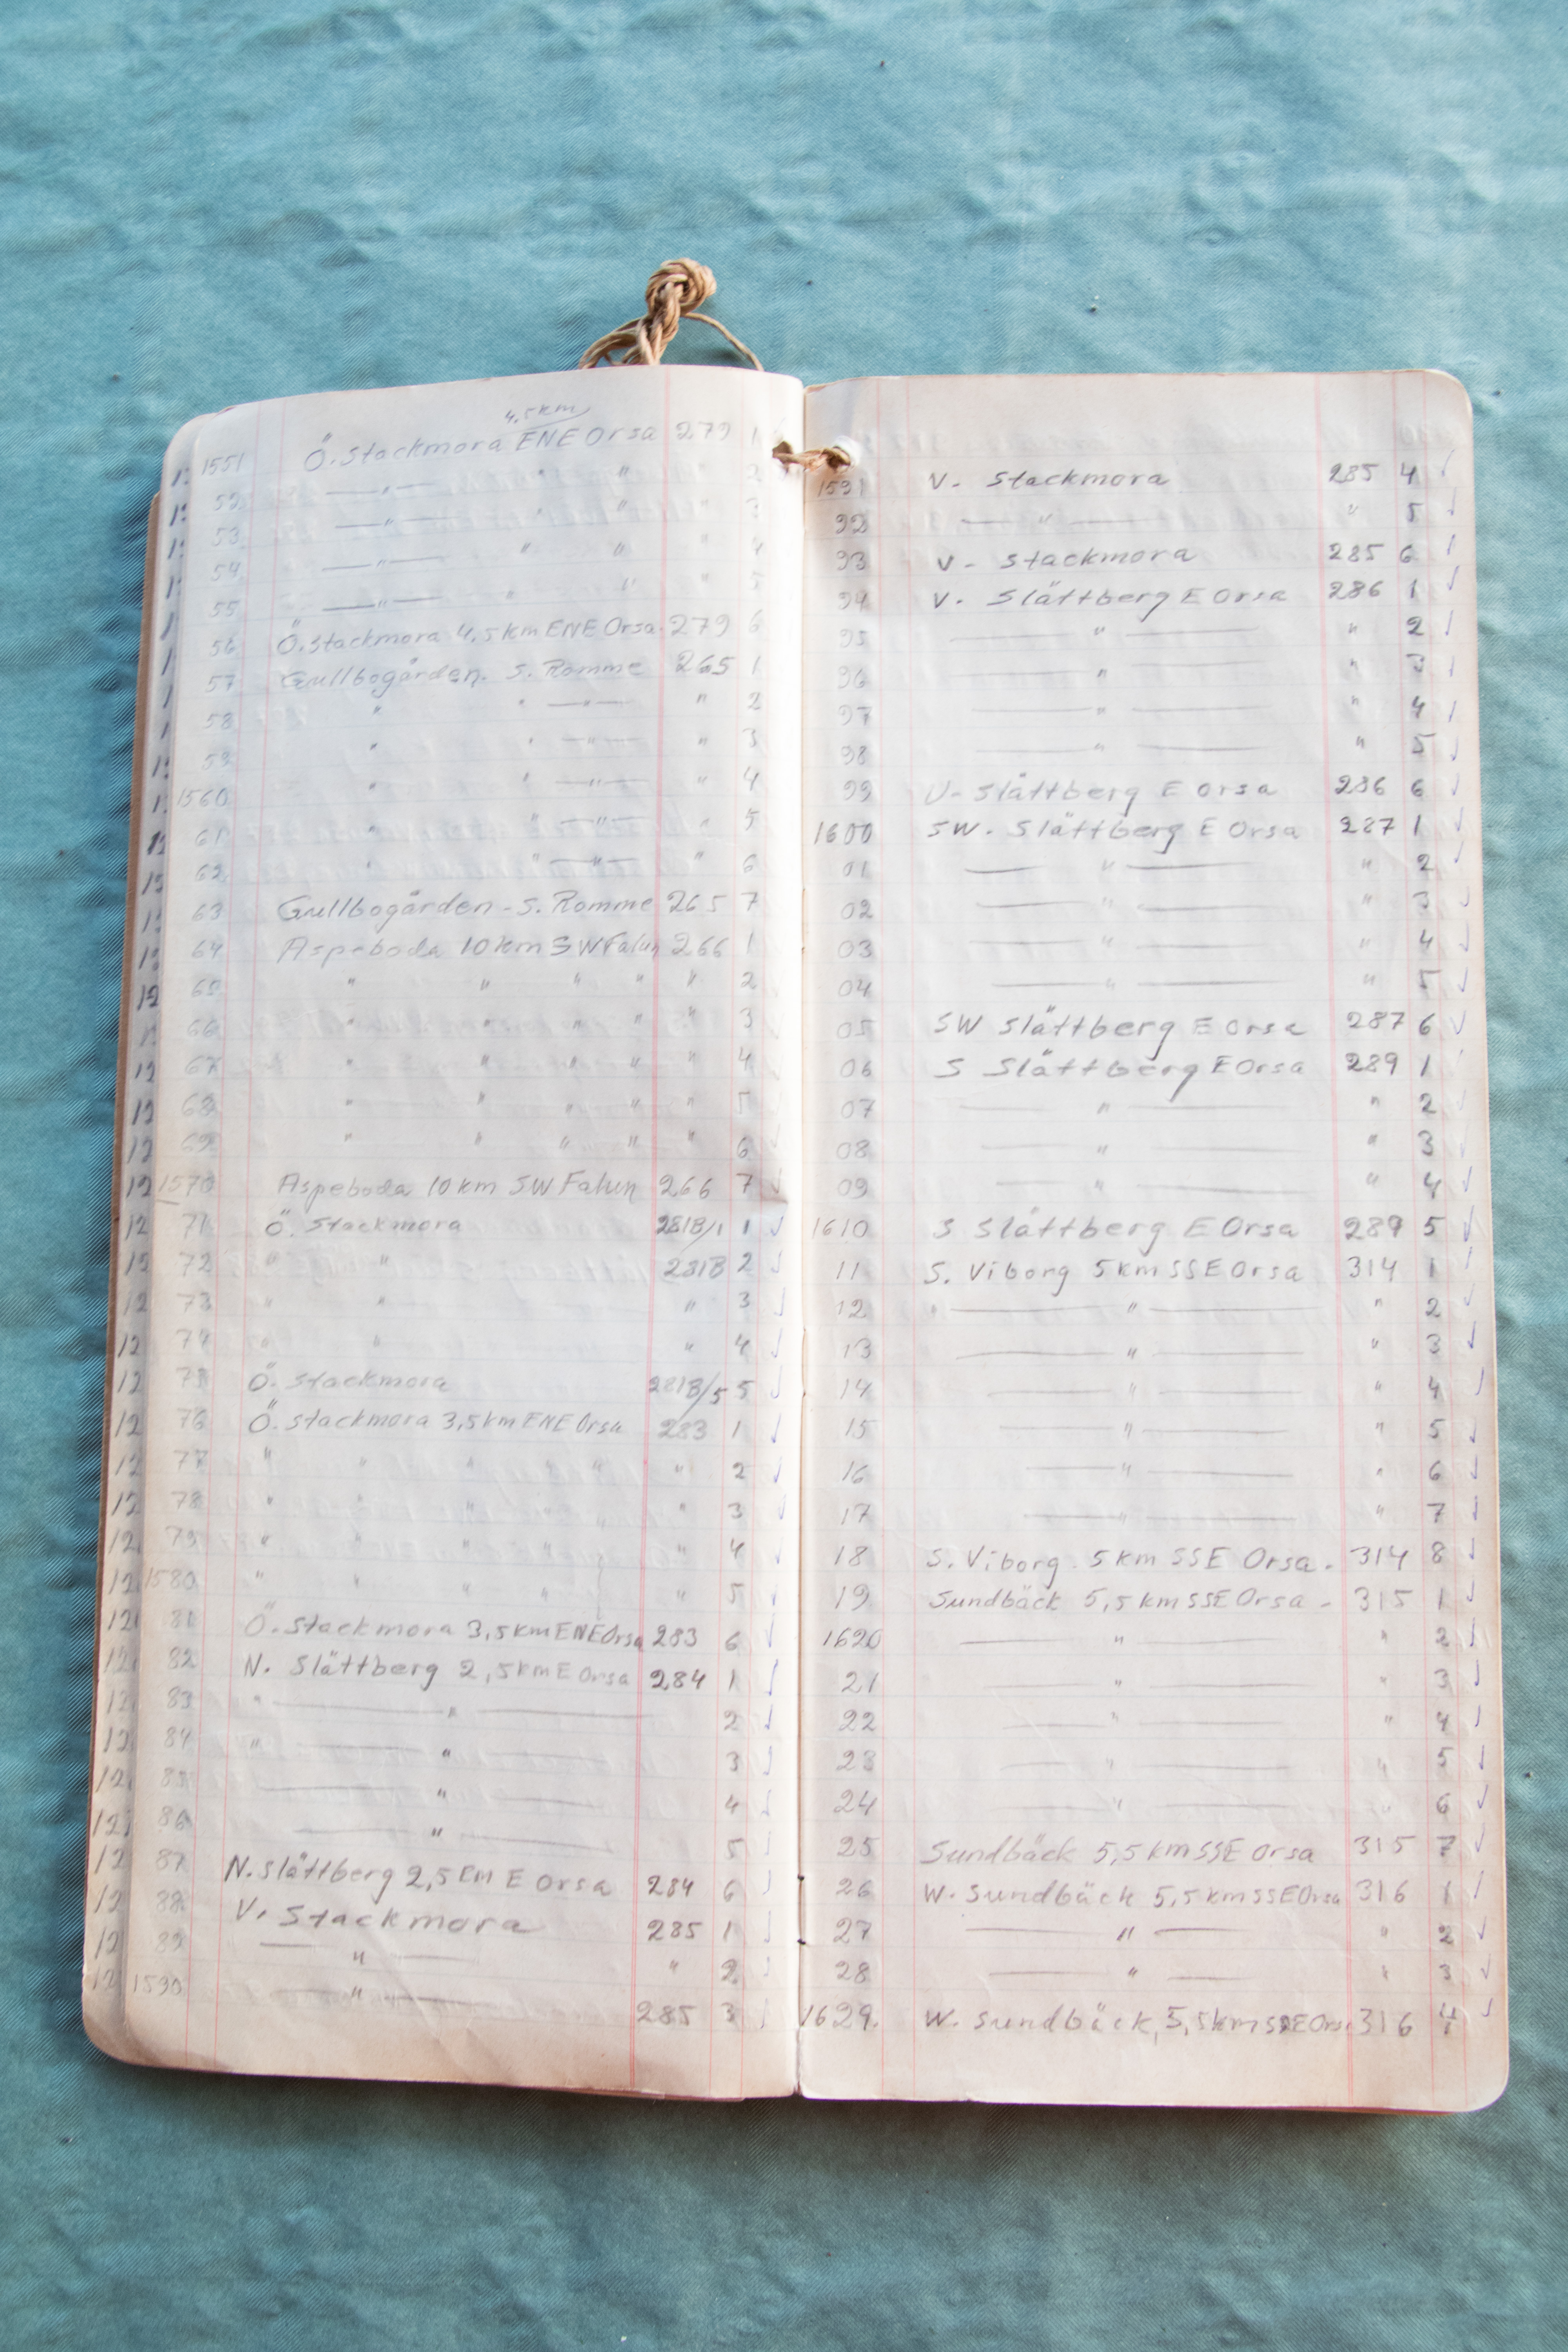 4,5km
1551 Ö. Stackmora ENE Orsa 279 1
52 —"— " " " 2
53 —"— " " " 3
54 —"— " " " 4
55 —"— " " " 5
56 Ö. Stackmora 4,5km ENE Orsa. 279 6
57 Gullbogården. S. Romme 265 1
58 " " —"— " 2
59 " " —"— " 3
1560 " " —"— " 4
61 " " —"— " 5
62 " " —"— " 6
63 Gullbogården - S. Romme 265 7
64 Aspeboda 10km SW Falun 266 1
65 " " " " " 2
66 " " " " " 3
67 " " " " " 4
68 " " " " " 5
69 " " " " " 6
1570 Aspeboda 10km SW Falun 266 7
71 Ö. Stackmora 281B/1 1 ✓
72 " " 281B 2 ✓
73 " " " 3 ✓
74 " " " 4 ✓
75 Ö. Stackmora 281B/5 5 ✓
76 Ö. Stackmora 3,5km ENE Orsa 283 1 ✓
77 " " " " " " 2 ✓
78 " " " " " 3 ✓
79 " " " " " " 4 ✓
1580 " " " " " 5 ✓
81 Ö. Stackmora 3,5km ENE Orsa 283 6 ✓
82 N. Slättberg 2,5km E Orsa 284 1 ✓
83 " —"— 2 ✓
84 " —"— 3 ✓
85 —"— 4 ✓
86 —"— 5 ✓
87 N. Slättberg 2,5km E Orsa 284 6 ✓
88 V. Stackmora 285 1 ✓
89 —"— " 2 ✓
1590 —"— 285 3 ✓
1591 V. Stackmora 285 4 ✓
92 —"— " 5 ✓
93 V - Stackmora 285 6 ✓
94 V. Slättberg E Orsa 286 1 ✓
95 —"— " 2 ✓
96 —"— " 3 ✓
97 —"— " 4 ✓
98 —"— " 5 ✓
99 V- Slättberg E Orsa 286 6 ✓
1600 SW. Slättberg E Orsa 287 1 ✓
01 —"— " 2 ✓
02 —"— " 3 ✓
03 —"— " 4 ✓
04 —"— " 5 ✓
05 SW Slättberg E Orsa 287 6 ✓
06 S Slättberg E Orsa 289 1 ✓
07 —"— " 2 ✓
08 —"— " 3 ✓
09 —"— " 4 ✓
1610 S Slättberg E Orsa 289 5 ✓
11 S. Viborg 5km SSE Orsa 314 1 ✓
12 " —"— " 2 ✓
13 —"— " 3 ✓
14 —"— " 4 ✓
15 —"— " 5 ✓
16 —"— " 6 ✓
17 —"— " 7 ✓
18 S. Viborg. 5km SSE Orsa. 314 8 ✓
19 Sundbäck 5,5km SSE Orsa - 315 1 ✓
1620 —"— " 2 ✓
21 —"— " 3 ✓
22 —"— " 4 ✓
23 —"— " 5 ✓
24 —"— " 6 ✓
25 Sundbäck 5,5km SSE Orsa 315 7 ✓
26 W. Sundbäck 5,5km SSE Orsa 316 1 ✓
27 —"— " 2 ✓
28 —"— " 3 ✓
1629. W. Sundbäck, 5,5km SSE Orsa 316 4 ✓